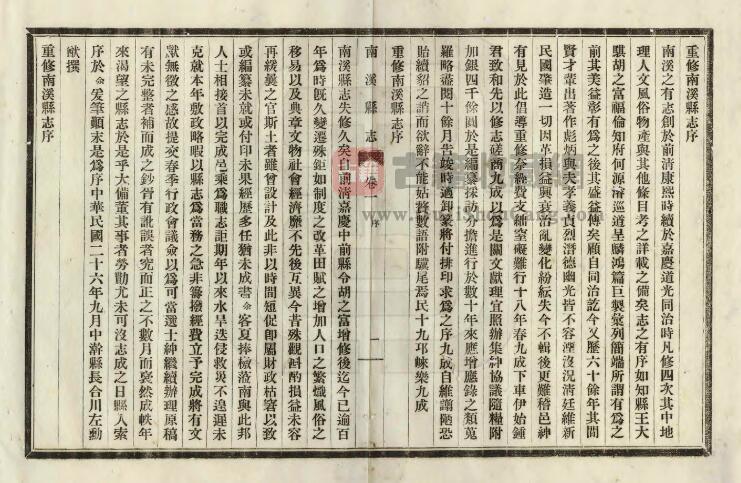 重修南溪縣志序
南溪之有志創於前清康熙時續於嘉慶道光同治時凡修四次其中地
理人文風俗物產與其他條目考之詳載之備矣志之有序如知縣王大
騏胡之富福倫知府何源濬巡道呈麟鴻篇巨製彙列簡端所謂有爲之
前其美益彰有爲之後其盛益傳矣顧自同治訖今又歷六十餘年其間
賢才輩出著作彪炳與夫孝義貞烈潛德幽光皆不容湮沒況清廷維新
民國肇造一切因革損益興衰治亂變化紛紜失今不輯後更難稽邑紳
有見於此倡導重修奈經費支絀窒礙難行十八年春九成下車伊始鍾
君致和先以修志磋商九成以爲是關文獻理宜照辦集紳協議隨糧附
加銀四千餘圓於是編纂採訪分擔進行於數十年來應增應錄之類蒐
羅略盡閱十餘月告竣時適卸篆將付排印求爲之序九成自維譾陋恐
貽續貂之誚而欲辭不能姑將數語附驥尾焉民十九邛崍樂九成
重修南溪縣志序
南溪縣志 卷一 序 一
南溪縣志失修久矣自前清嘉慶中前縣令胡之富增修後迄今已逾百
年爲時旣久變遷殊鉅如制度之改革田賦之增加人口之繁熾風俗之
移易以及典章文物社會經濟靡不先後互異今昔殊觀斟酌損益未容
再緩曩之官斯土者雖曾設計及此非以時間短促卽屬財政枯窘以致
或編纂未就或付印未果經歷多任猶未成書㑒客夏捧檄蒞南與此邦
人士相接首以完成邑乘爲職志詎期年以來水旱迭侵救災不遑遲未
克就本年敷政略暇以縣志爲當務之急非籌撥經費立予完成將有文
獻無徵之感故提交春季行政會議僉以爲可當選士紳繼續辦理原稿
有未完整者補而成之鈔胥有訛誤者究而正之不數月而裒然成帙年
來渴望之縣志於是乎大備董其事者勞勩尤未可沒志成之日縣人索
序於㑒爰筆顚末是爲序中華民國二十六年九月中澣縣長合川左勷
猷撰
重修南溪縣志序